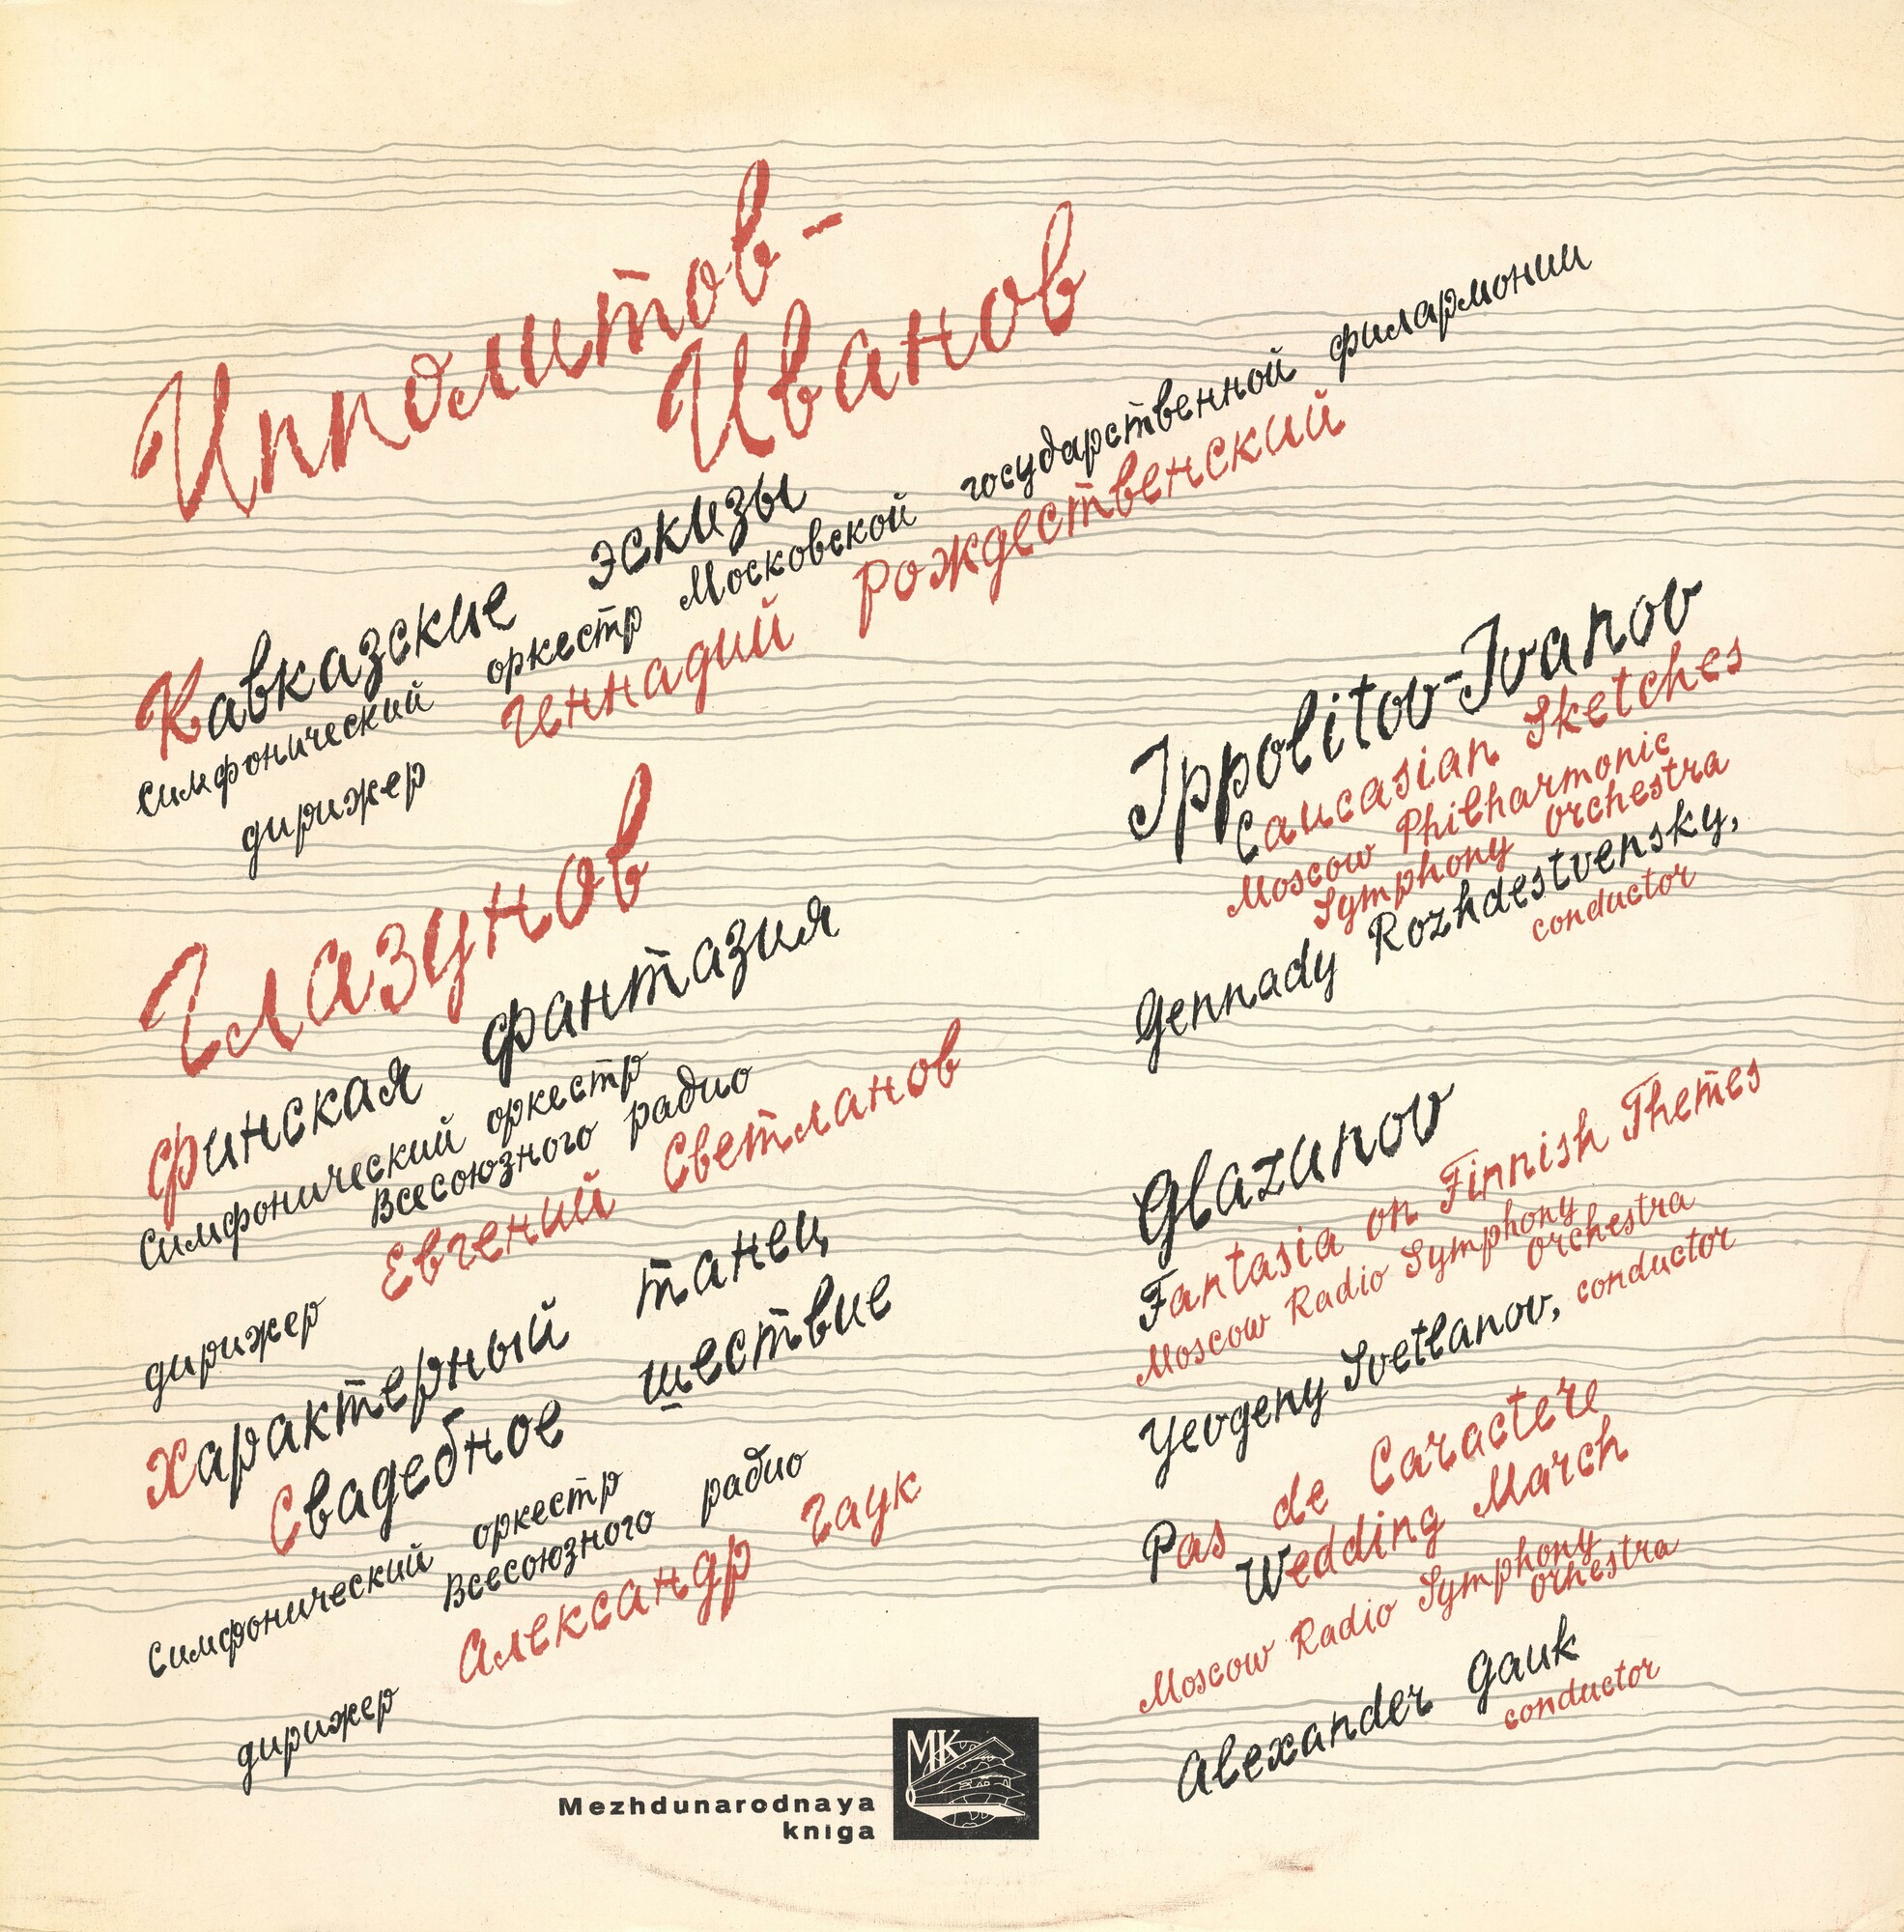 Ипполитов-
Иванов
Кавказские эскизы
симфонический оркестр Московской государственной филармонии
дирижер Геннадий Рождественский
Глазунов
финская фантазия
Симфонический оркестр
Всесоюзного радио
дирижер Евгений Светланов
Характерный танец
Свадебное шествие
Симфонический оркестр
Всесоюзного радио
дирижер Александр Гаук
Ippolitov-Ivanov
Caucasian Sketches
Moscow Philharmonic
Symphony orchestra
Gennady Rozhdestvensky,
conductor
Glazunov
Fantasia on Finnish Themes
Moscow Radio Symphony
orchestra
Yevgeny Svetlanov, conductor
Pas de Caractere
Wedding March
Moscow Radio Symphony
orhestra
Alexander Gauk
conductor
MK
Mezhdunarodnaya
kniga